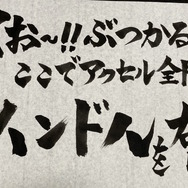 「お〜!!ぶつかる
ここでアクセル全
ハンドルを